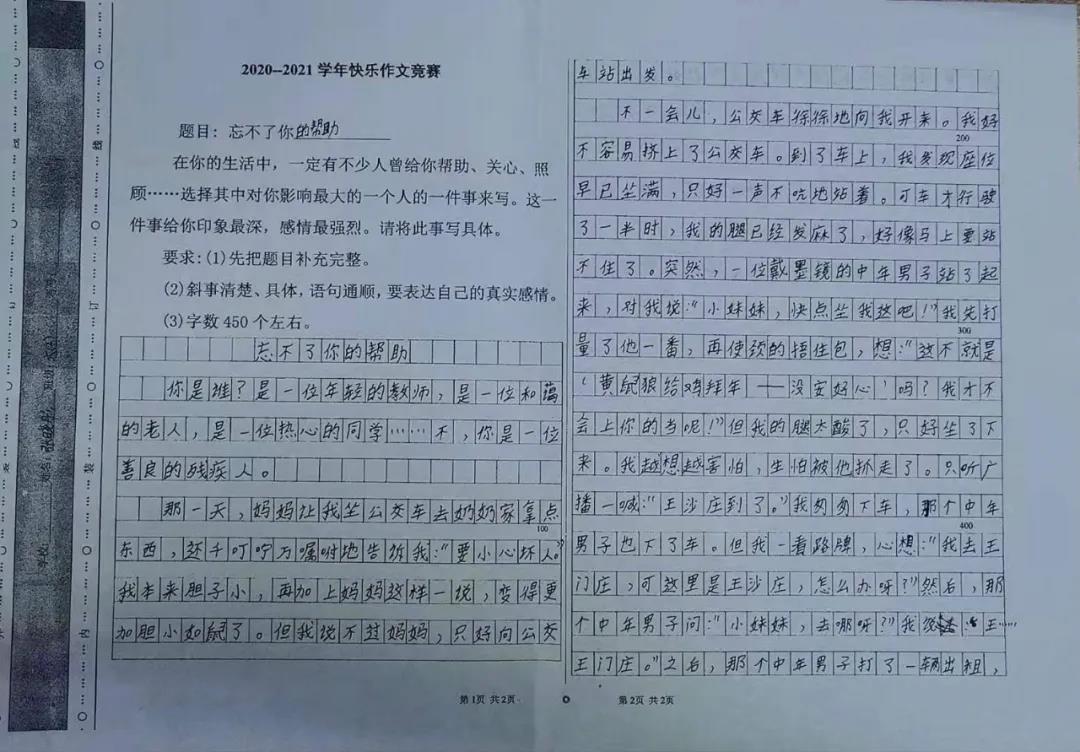 2020--2021 学年快乐作文竞赛
题目：忘不了你的帮助
在你的生活中，一定有不少人曾给你帮助、关心、照
顾……选择其中对你影响最大的一个人的一件事来写。这一
件事给你印象最深，感情最强烈。请将此事写具体。
要求：(1)先把题目补充完整。
(2)斜事清楚、具体，语句通顺，要表达自己的真实感情。
(3)字数450个左右。
忘不了你的帮助
你是谁？是一位年轻的教师，是一位和蔼
的老人，是一位热心的同学……不，你是一位
善良的残疾人。
那一天，妈妈让我坐公交车去奶奶家拿点
100
东西，还千叮咛万嘱咐地告诉我："要小心坏人。"
我本来胆子小，再加上妈妈这样一说，变得更
加胆小如鼠了。但我说不过妈妈，只好向公交
第1页 共2页
车站出发。
不一会儿，公交车徐徐地向我开来。我好
200
不容易挤上了公交车。到了车上，我发现座位
早已坐满，只好一声不吭地站着。可车才行驶
了一半时，我的腿已经发麻了，好像马上要站
不住了。突然，一位戴墨镜的中年男子站了起
来，对我说："小妹妹，快点坐我这吧！"我先打
300
量了他一番，再使颈的捂住包，想："这不就是
'黄鼠狼给鸡拜年——没安好心'吗？我才不
会上你的当呢！"但我的腿太酸了，只好坐了下
来。我越想越害怕，生怕被他抓走了。只听广
播一喊："王沙庄到了。"我匆匆下车，那个中年
400
男子也下了车。但我一看路牌，心想："我去王
门庄，可这里是王沙庄，怎么办呀？"然后，那
个中年男子问："小妹妹，去哪呀？"我说："王……
王门庄。"之后，那个中年男子打了一辆出租，
第2页 共2页
学校
姓名
班级
装
订
线
内